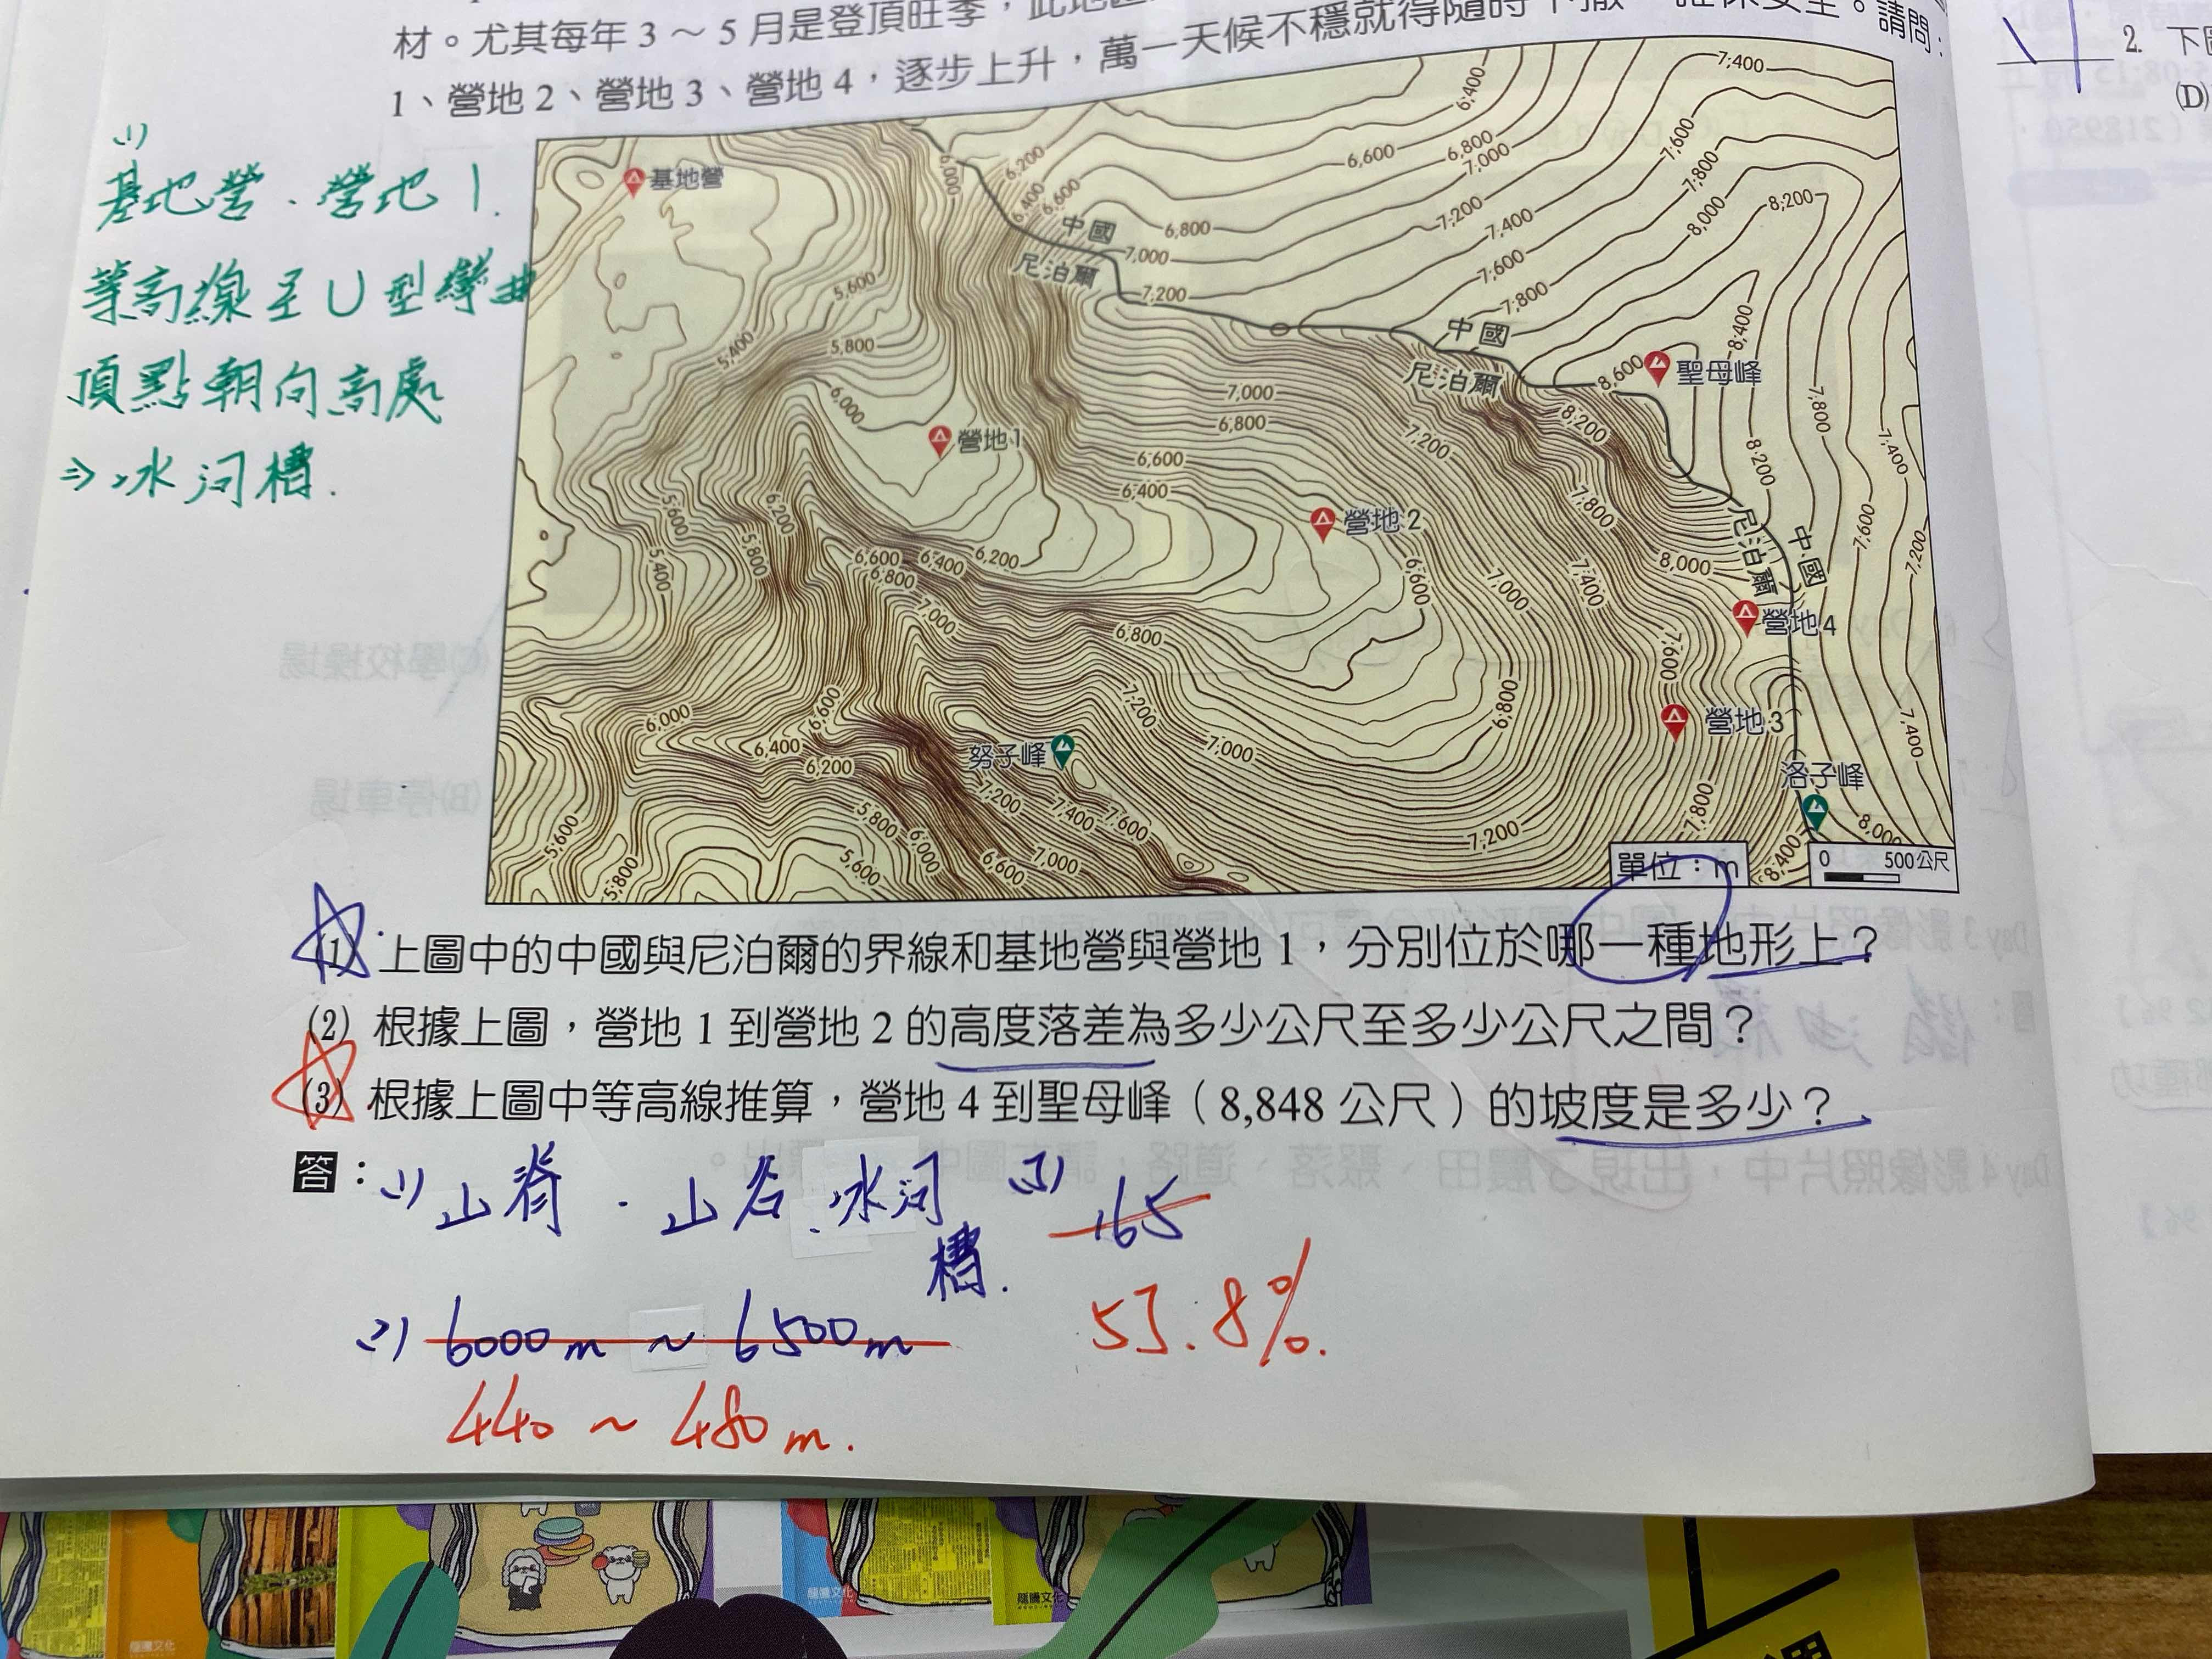 材。尤其每年 3～5 月是登頂旺季，此地
1、營地 2、營地 3、營地 4，逐步上升，萬一天候不穩就得隨時下撤，確保安全。請問：
2. 下
(D)
(1)
基地營、營地1.
等高線呈U型彎曲
頂點朝向高處
⇒冰河槽.
基地營
中國
尼泊爾
中國
尼泊爾
聖母峰
營地1
營地2
中國
尼泊爾
營地4
營地3
努子峰
洛子峰
單位：m
0 500公尺
7,400
6,400
6,600
6,800
7,000
7,600
7,800
8,000
8,200
6,000
6,200
6,400
6,600
6,800
7,000
7,200
7,200
7,400
7,600
7,800
5,600
5,400
5,800
6,000
8,600
8,400
8,200
8,200
7,800
7,400
7,600
7,200
7,000
6,800
6,600
6,400
7,200
7,800
8,000
7,400
7,000
6,600
5,600
5,400
6,200
5,800
6,600
6,400
6,200
6,800
7,000
6,800
6,800
7,600
7,400
6,000
6,400
6,200
6,600
7,200
7,000
7,200
7,400
7,600
7,200
7,800
8,400
8,000
5,600
5,800
5,800
6,000
5,600
6,600
7,000
(1) 上圖中的中國與尼泊爾的界線和基地營與營地 1，分別位於哪一種地形上？
(2) 根據上圖，營地 1 到營地 2 的高度落差為多少公尺至多少公尺之間？
(3) 根據上圖中等高線推算，營地 4 到聖母峰（8,848 公尺）的坡度是多少？
答：(1) 山脊、山谷.冰河槽. (3) 165
53.8%.
(2) 6000m ~ 6500m
440 ~ 480m.
龍騰文化
龍騰文化
龍騰文化